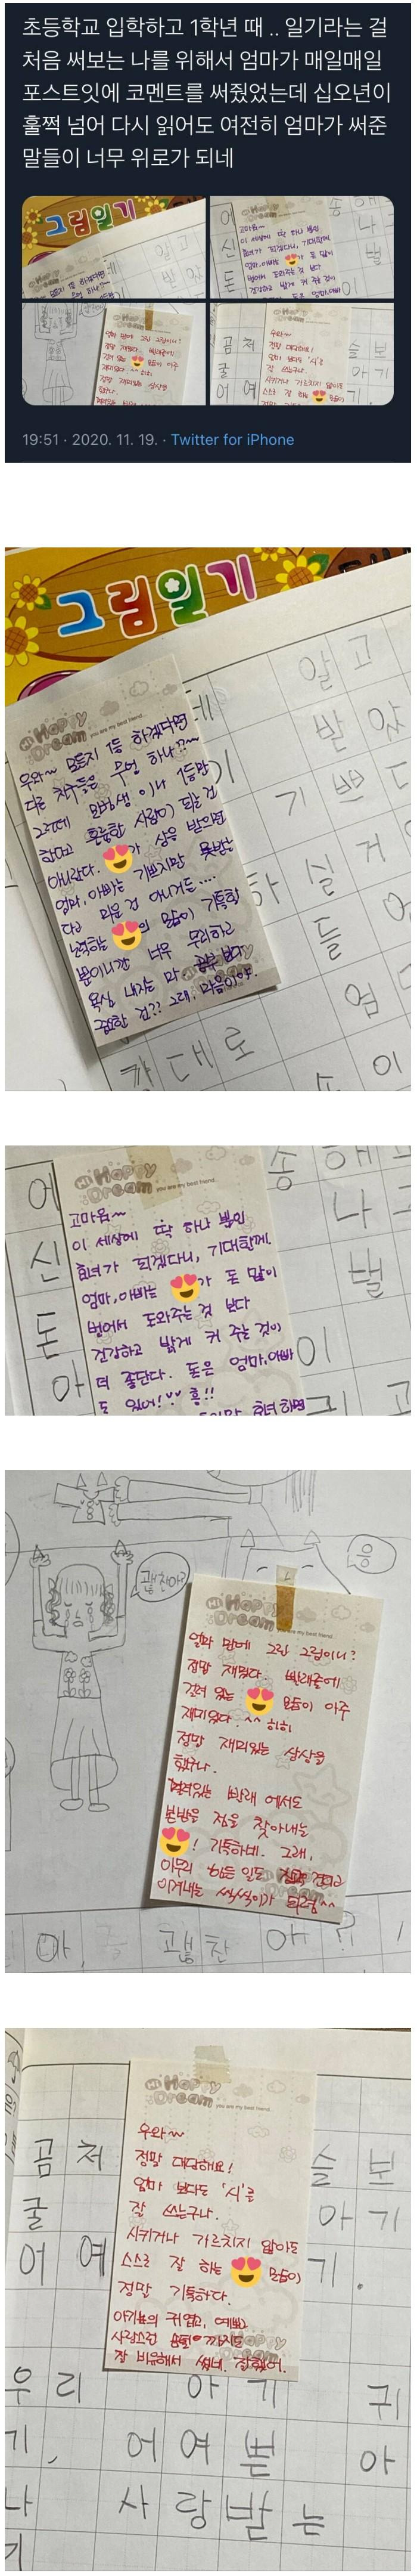 초등학교 입학하고 1학년 때 .. 일기라는 걸
처음 써보는 나를 위해서 엄마가 매일매일
포스트잇에 코멘트를 써줬었는데 십오년이
훌쩍 넘어 다시 읽어도 여전히 엄마가 써준
말들이 너무 위로가 되네
19:51 · 2020. 11. 19. · Twitter for iPhone
그림일기
Happy
Dream you are my best friend.
우와~ 모든지 1등 하겠다면
다른 친구들은 무얼 하나??~
그런데 만번생 이나 1등만
하다고 훌륭한 사람이 되는 건
아니란다. 가 상을 받으면
엄마, 아빠는 기쁘지만 못받는
다고 미운 건 아니거든....
노력하는 의 모습이 기특할
뿐이니깐 너무 무리하고
욕심 내지는 마. 공부 보다
중요한 건?? 그래, 마음이야.
알고
받았
기쁘다
하실 거
들
엄
기대로
이
Happy
Dream you are my best friend.
고마움~
이 세상에 딱 하나 뿐인
효녀가 되겠다니, 기대할께.
엄마, 아빠는 가 돈 많이
벌어서 도와주는 것 보다
건강하고 밝게 커 주는 것이
더 좋단다. 돈은 엄마, 아빠
도 있어! 흥!!
어
신
돈
아
송
나
벌
이
괜찮아?
응
Happy
Dream you are my best friend.
엄마 맘에 그린 그림이니?
정말 재밌다. 빨래줄에
걸려 있는 모습이 아주
재미있다. ^^ 히히
정말 재미있는 상상을
했구나.
걸려있는 빨래 에서도
본받을 점을 찾아내는
! 기특하네. 그래,
아무리 힘든 일도 참고 견디고
이겨내는 씩씩이가 되렴^^
아, 괜찮아?
Happy
Dream you are my best friend.
우와~
정말 대단해요!
엄마 보다도 '시'를
잘 쓰는구나.
시키거나 가르치지 않아도
스스로 잘 하는 모습이
정말 기특하다.
아기의 귀엽고, 예쁘고
사랑스런 손발 까지도
잘 비유해서 썼네. 잘했어.
곰 처
굴
어 여
슬 보
아 기
기.
우리 아기 귀
기, 어여쁜 아
나 사랑받는
기